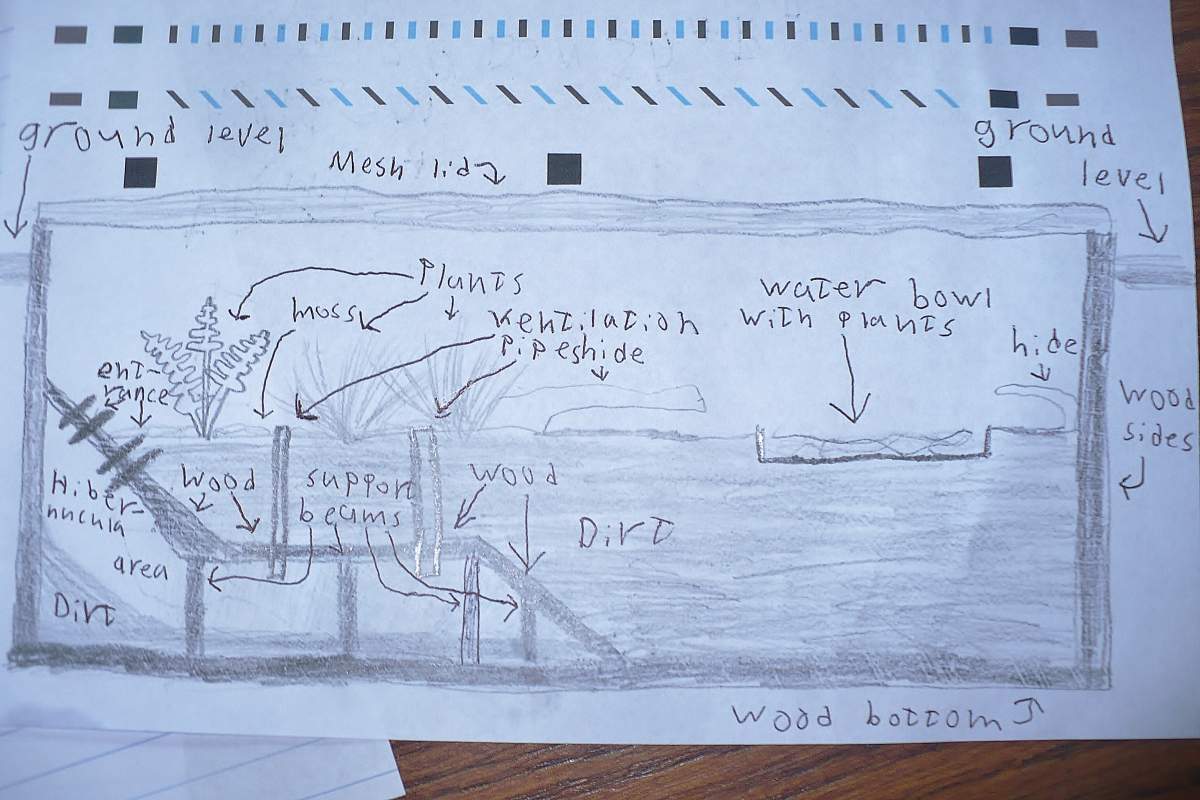 ground level
ground
level
Mesh lid
Plants
moss
ventilation
Pipeshide
water bowl
with plants
hide
ent-
rance
wood
sides
Hiber-
nucula
area
wood
support
beams
wood
Dirt
Dirt
wood bottom